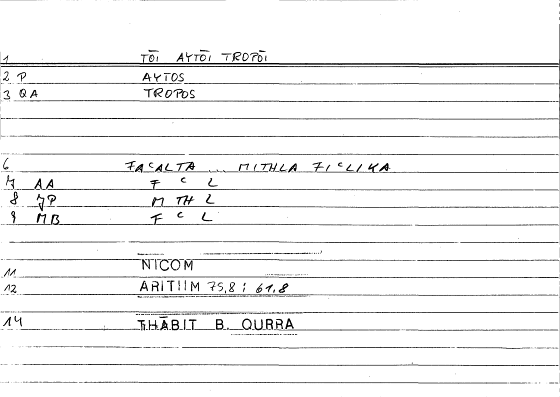 1 TŌI AYTŌI TROPŌI
2 P AYTOS
3 QA TROPOS
6 FAᶜALTA ... MITHLA FIᶜLIKA
7 AA F ᶜ L
8 JP M TH L
9 MB F ᶜ L
11 NICOM
12 ARITHM 75,8 ; 61,8
14 THĀBIT B. QURRA